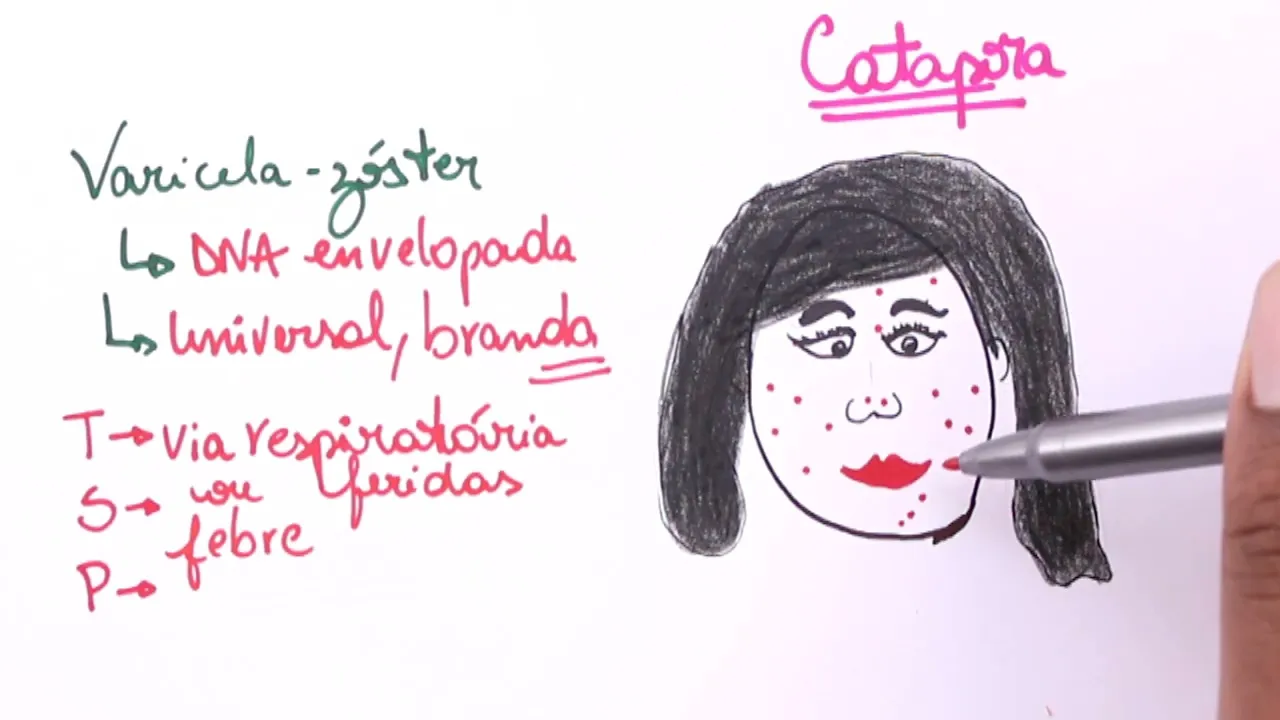 Catapora
Varicela-zóster
↳ DNA envelopada
↳ Universal, branda
T → via respiratória
ou feridas
S → febre
P →